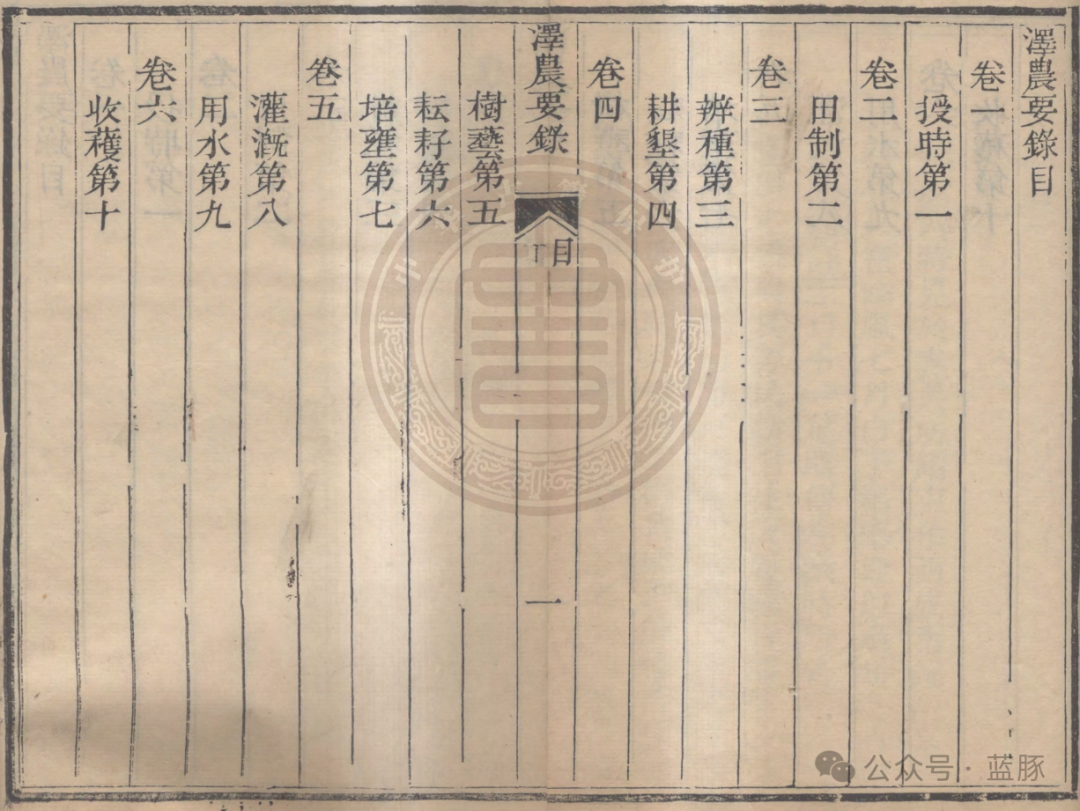 澤農要錄目
卷一
授時第一
卷二
田制第二
卷三
辨種第三
耕墾第四
卷四
澤農要錄
目
一
樹藝第五
耘耔第六
培壅第七
卷五
灌溉第八
用水第九
卷六
收穫第十
公众号·蓝豚